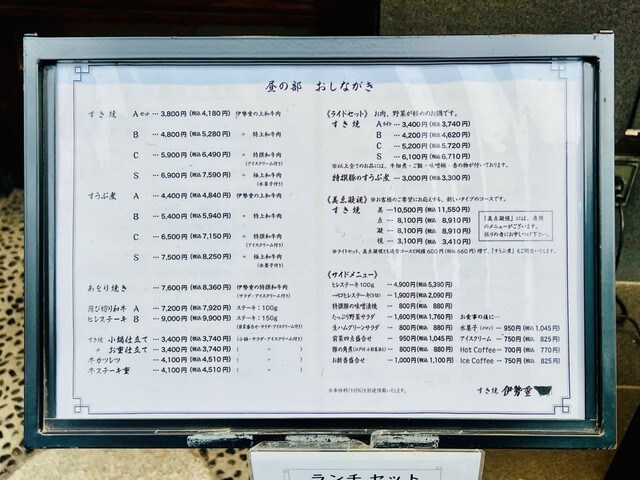 昼の部 おしながき
すき焼 Aセット … 3,800円 (税込 4,180円) 伊勢重の上和牛肉
B … 4,800円 (税込 5,280円) 〃 特上和牛肉
C … 5,900円 (税込 6,490円) 〃 特撰和牛肉
(アイスクリーム付き)
S … 6,900円 (税込 7,590円) 〃 極上和牛肉
(水菓子付き)
すうぷ煮 A … 4,400円 (税込 4,840円) 伊勢重の上和牛肉
B … 5,400円 (税込 5,940円) 〃 特上和牛肉
C … 6,500円 (税込 7,150円) 〃 特撰和牛肉
(アイスクリーム付き)
S … 7,500円 (税込 8,250円) 〃 極上和牛肉
(水菓子付き)
あぶり焼き … 7,600円 (税込 8,360円) 伊勢重の特撰和牛肉
(サラダ・アイスクリーム付き)
飛び切り和牛 A … 7,200円 (税込 7,920円) ステーキ：100g
ヒレステーキ B … 9,000円 (税込 9,900円) ステーキ：150g
(前菜盛合せ・サラダ・アイスクリーム付き)
すき焼 小鍋仕立て … 3,400円 (税込 3,740円) (小鉢・サラダ・アイスクリーム付き)
〃 お重仕立て … 3,400円 (税込 3,740円) ( 〃 )
牛カツレツ … 4,100円 (税込 4,510円) ( 〃 )
牛ステーキ重 … 4,100円 (税込 4,510円) ( 〃 )
《ライドセット》 お肉、野菜が軽めのお鍋です。
すき焼 Aライト … 3,400円 (税込 3,740円)
B … 4,200円 (税込 4,620円)
C … 5,200円 (税込 5,720円)
S … 6,100円 (税込 6,710円)
※以上全てのお品には、牛佃煮・ご飯・味噌椀・香の物が付いております。
特撰豚のすうぷ煮 … 3,000円 (税込 3,300円)
《美点凝視》 ※お客様のご要望にお応えする、新しいタイプのコースです。
すき焼 美 … 10,500円 (税込 11,550円)
点 … 8,100円 (税込 8,910円)
凝 … 8,100円 (税込 8,910円)
視 … 3,100円 (税込 3,410円)
「美点凝視」には、専用
のメニューがございます。
係りの者にお申しつけ下さい。
※ライトセット、美点凝視でも追加コースで同様 600円 (税込 660円) 増で、「すうぷ煮」もご用意いたします。
《サイドメニュー》
ヒレステーキ 100g … 4,900円 (税込 5,390円)
一口ヒレステーキ … 1,900円 (税込 2,090円)
特撰豚の味噌漬焼 … 800円 (税込 880円)
たっぷり野菜サラダ … 1,600円 (税込 1,760円)
生ハムグリーンサラダ … 800円 (税込 880円)
前菜四点盛合せ … 950円 (税込 1,045円)
豚の角煮 … 800円 (税込 880円)
お新香盛合せ … 1,000円 (税込 1,100円)
お食事の後に…
水菓子 (メロン) … 950円 (税込 1,045円)
アイスクリーム … 750円 (税込 825円)
Hot Coffee … 700円 (税込 770円)
Ice Coffee … 750円 (税込 825円)
※奉仕料(10%)を別途頂戴いたします。
すき焼 伊勢重
ランチセット